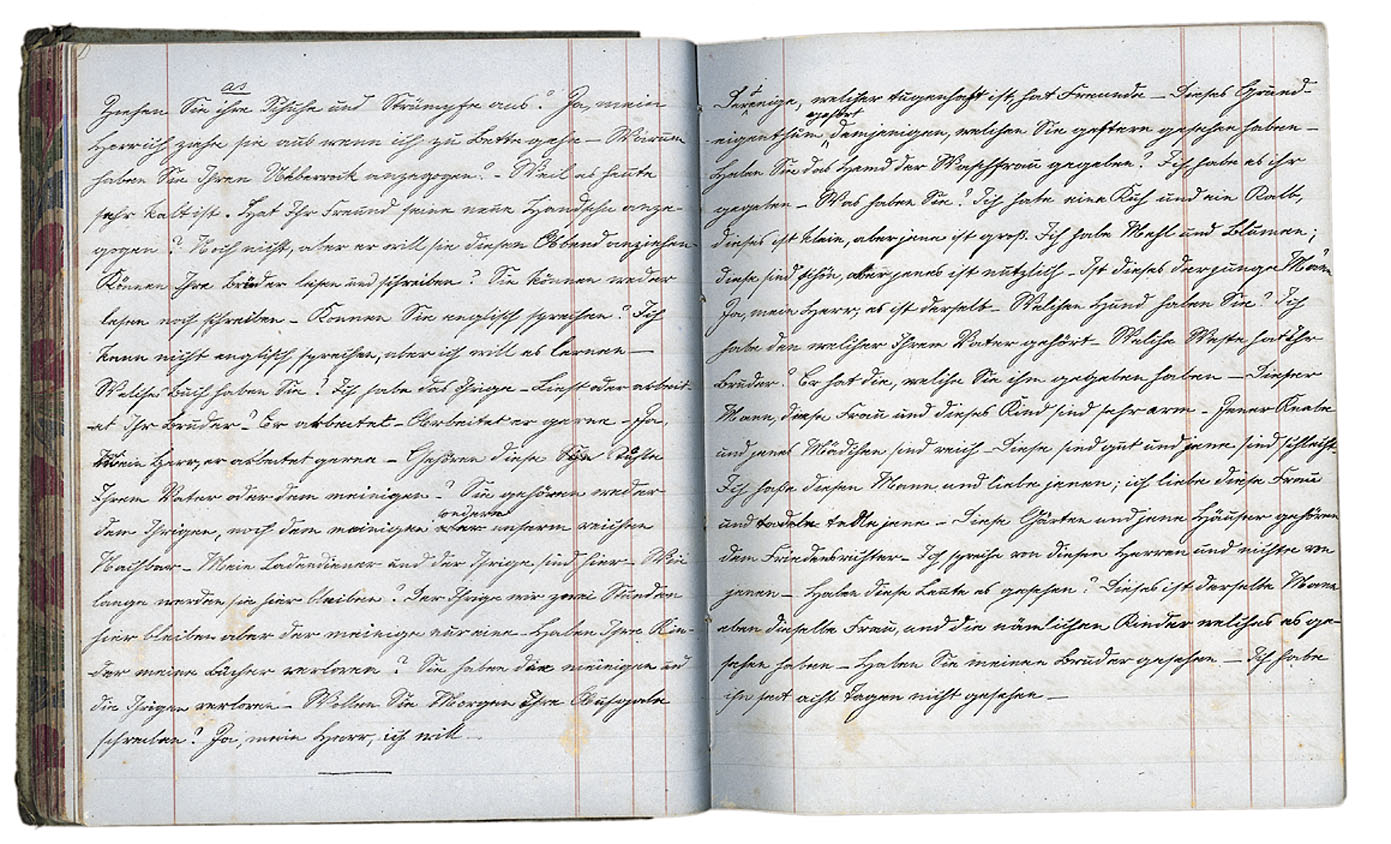 as
Ziehen Sie ihre Schuhe und Strümpfe aus? Ja, mein
Herr ich ziehe sie aus wenn ich zu Bette gehe – Warum
haben Sie Ihren Ueberrock angezogen? – Weil es heute
sehr kalt ist. Hat Ihr Freund seine neue Handschu ange-
gogen? Noch nicht, aber er will sie diesen Abend anziehen
Können Ihre Brüder lesen und schreiben? Sie können weder
lesen noch schreiben – Konnen Sie englisch sprechen? Ich
kann nicht englisch sprechen, aber ich will es lernen –
Welches Buch haben Sie? Ich habe das Ihrige – Liest oder arbeit-
et Ihr Bruder – Er arbeitet – Arbeitet er gerne – Ja,
Mein Herr, er arbeitet gerne – Gehören diese Stühle
Ihrem Vater oder dem meinigen –? Sie gehören weder
ondern
dem Ihrigen, noch dem meinigen aber unserm reichen
Nachbar – Mein Ladendiener und der Ihrige, sind hier – Wie
lange werden sie hier bleiben? Der Ihrige wir zwei Stunden
hier bleiben aber der meinige nur eine – Haben Ihre Kin-
der meine Bücher verloren? Sie haben die meinigen und
die Ihrigen verloren – Wollen Sie Morgen Ihre Aufgabe
schreiben? Ja, mein Herr, ich will
Derjenige, welcher tugenhaft ist, hat Freunde – Dieses Grund-
gehört
eigenthum demjenigen, welchen Sie gestern gesehen haben –
Haben Sie das Hemd der Waschfrau gegeben? Ich habe es ihr
gegeben – Was haben Sie? Ich habe eine Kuh und ein Kalb,
dieses ist klein, aber jene ist groß. Ich habe Mehl und Blumen;
diese sind schön, aber jenes ist nutzlich – Ist dieses der junge Mann
Ja, mein Herr, es ist derselb – Welchen Hund haben Sie? Ich
habe den welcher Ihrem Vater gehört – Welche Weste hat Ihr
Bruder? Er hat die, welche Sie ihm gegeben haben – Dieser
Mann, diese Frau und dieses Kind sind sehr arm – Jener Knabe
und jenes Mädchen sind reich – Diese sind gut und jene sind schlecht.
Ich haße diesen Mann und liebe jenen; ich liebe diese Frau
und tadele jene – Diese Gärten und jene Häuser gehören
dem Friedensrichter – Ich spreche von diesen Herren und nichte von
jenen – Haben diese Leute es gesehen? Dieses ist derselbe Mann
eben dieselbe Frau, und die nämlichen Kinder welches es ge-
sehen haben – Haben Sie meinen Bruder gesehen – Ich habe
ihn seit acht Tagen nicht gesehen –